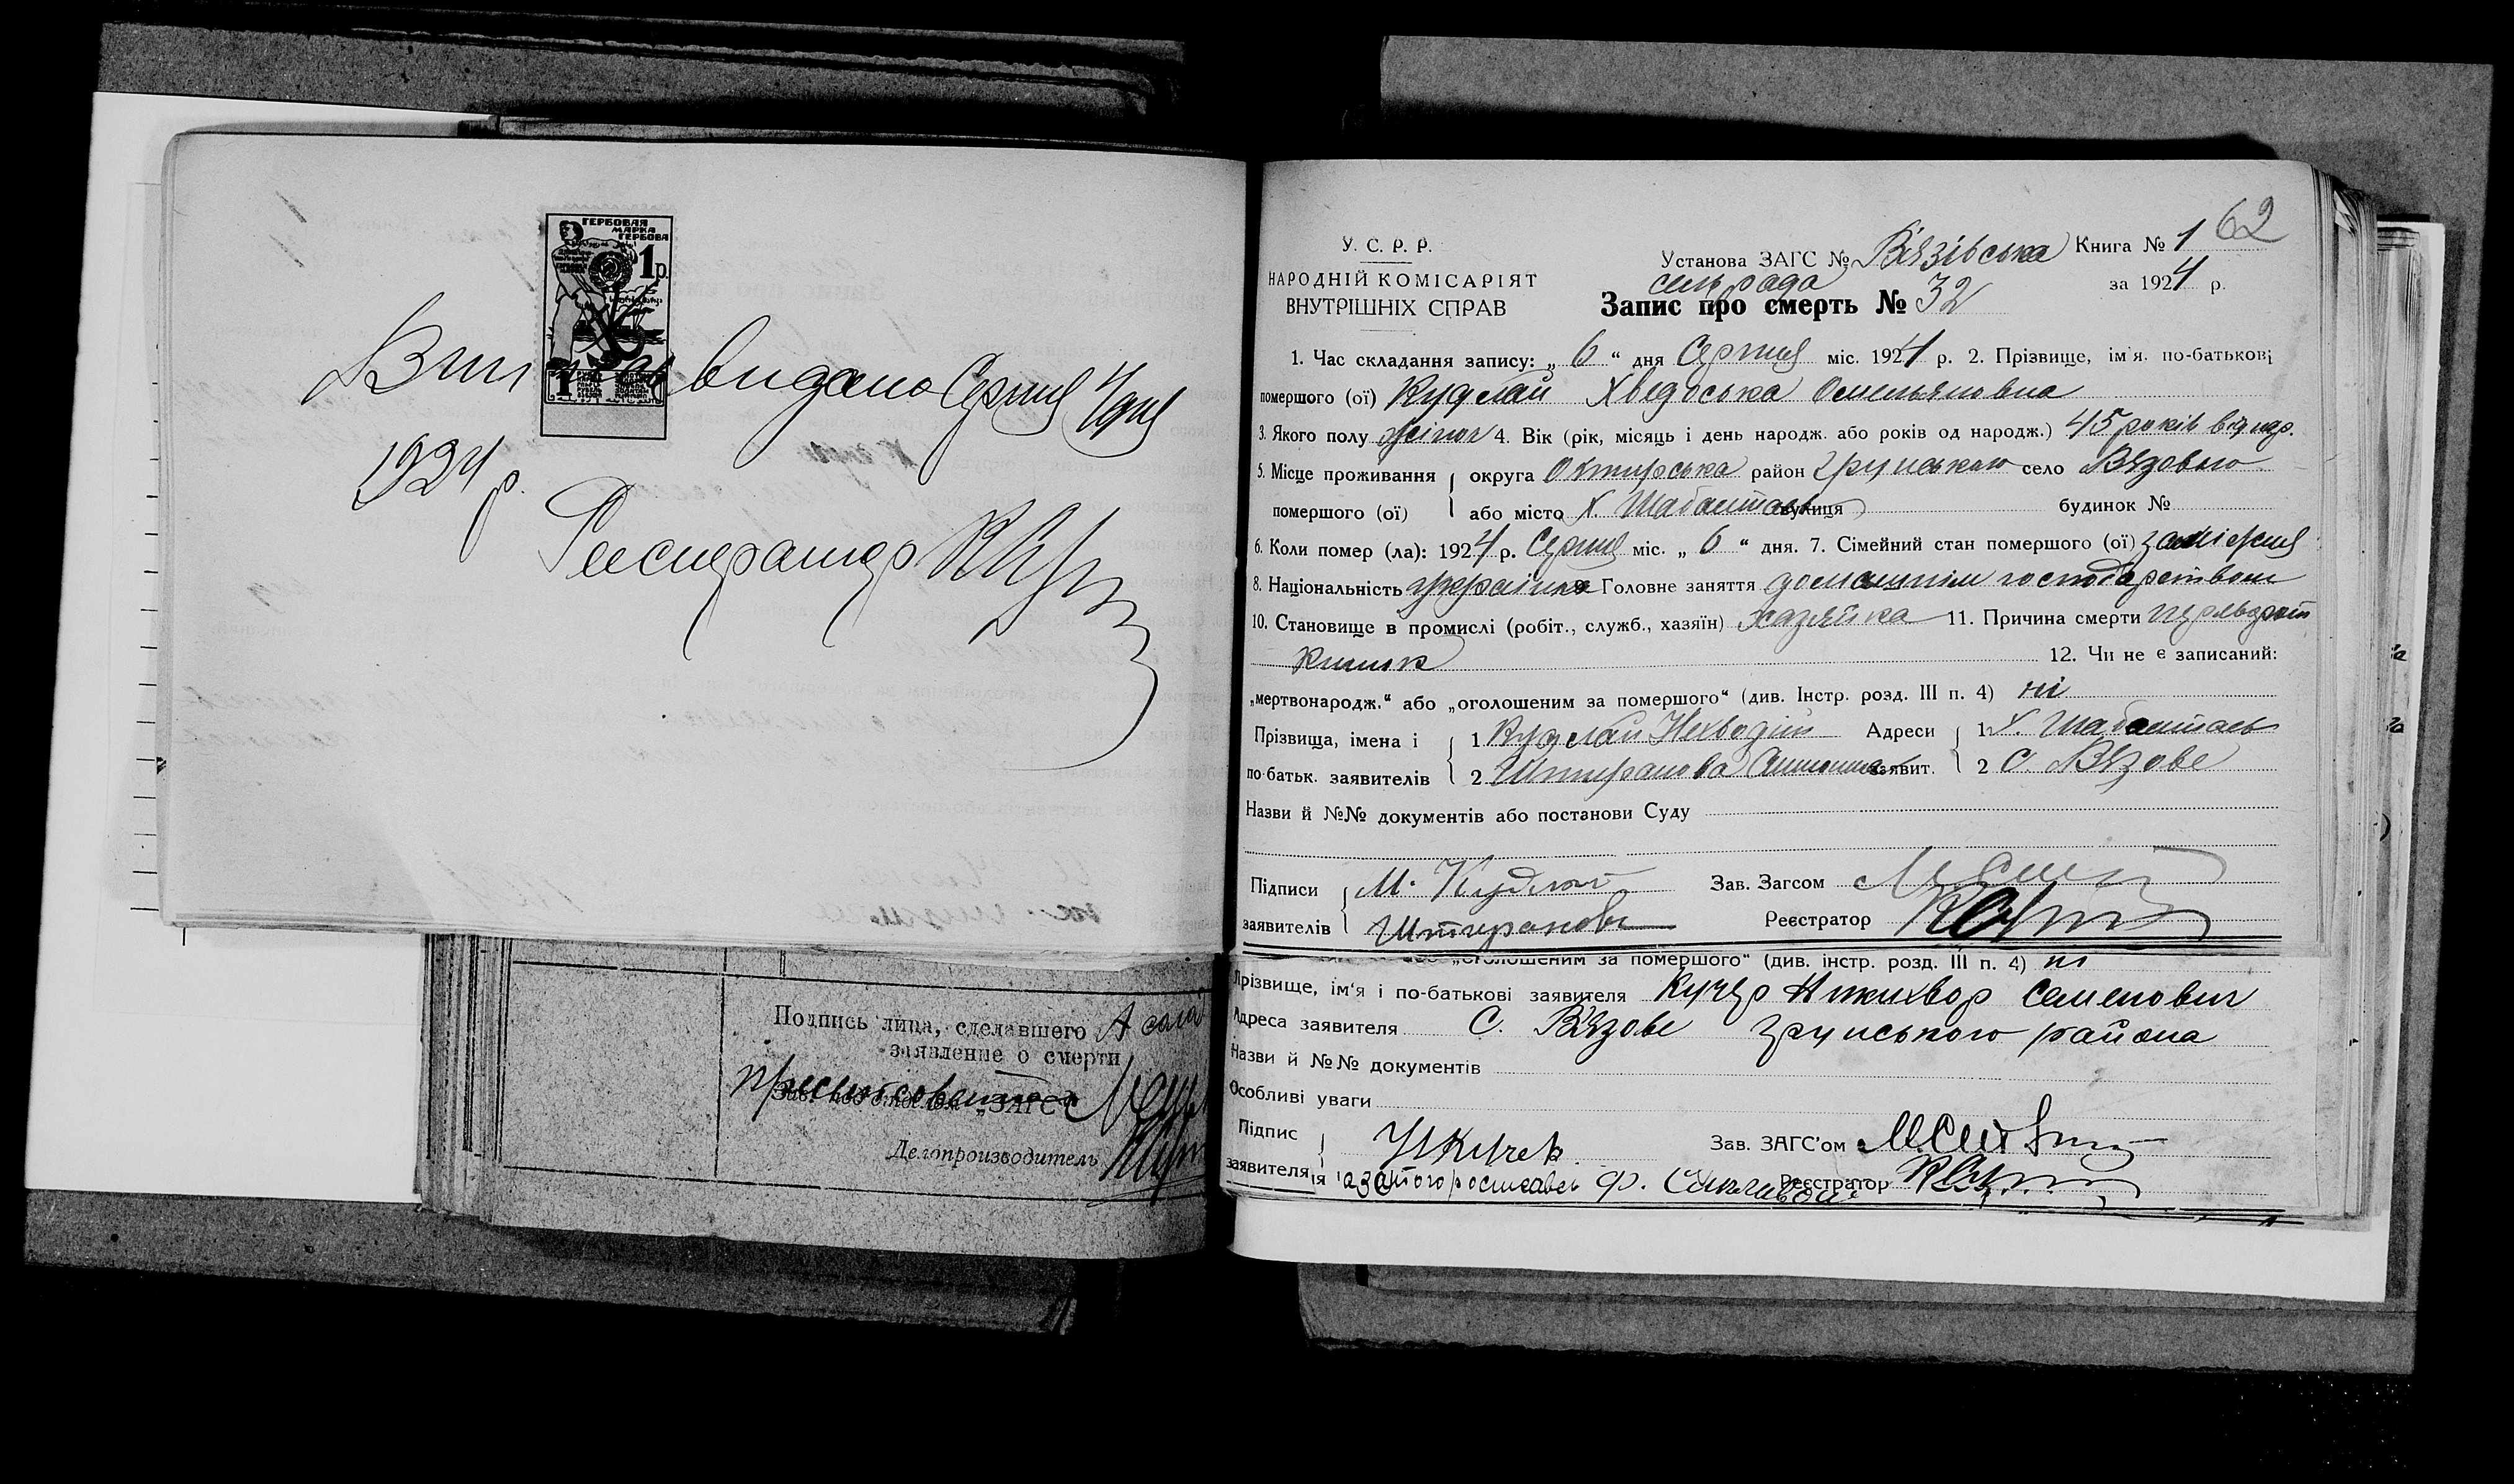 ГЕРБОВАЯ
МАРКА
ГЕРБОВА
1 р.
видано Серпня 4 дня
1924 р.
Реєстратор
62
У. С. Р. Р.
НАРОДНІЙ КОМІСАРІЯТ
ВНУТРІШНІХ СПРАВ
Установа ЗАГС № Вязівська Книга № 1
сельрада за 1924 р.
Запис про смерть № 32
1. Час складання запису: „ 6 “ дня Серпня міс. 1924 р. 2. Прізвище, ім'я. по-батькові
помершого (ої) Кудлай Хведоська Омельяновна
3. Якого полу жіноч 4. Вік (рік, місяць і день народж. або років од народж.) 45 років від нар.
5. Місце проживання округа Охтирська район Грунського село Вязового
помершого (ої) або місто х. Шабалтаєв вулиця будинок №
6. Коли помер (ла): 1924 р. Серпня міс. „ 6 “ дня. 7. Сімейний стан помершого (ої) заміжня
8. Національність українка Головне заняття домашнім господарством
10. Становище в промислі (робіт., служб., хазяїн) хазяйка 11. Причина смерти
кишок 12. Чи не є записаний:
„мертвонародж.“ або „оголошеним за помершого“ (див. Інстр. розд. III п. 4) ні
Прізвища, імена і 1 Кудлай Мехводій Адреси 1 х. Шабалтаєв
по-батьк. заявителів 2 Штиранова заявит. 2 С. Вязове
Назви й №№ документів або постанови Суду
Підписи М. Кудлай Зав. Загсом
заявителів Штиранова Реєстратор
„оголошеним за помершого“ (див. інстр. розд. III п. 4) ні
Прізвище, ім'я і по-батькові заявителя Кучер Никихвор Семенович
Адреса заявителя С. Вязове Грунського района
Назви й №№ документів
Особливі уваги
Підпис Н Кучер Зав. ЗАГС'ом
заявителя Реєстратор
Подпись лица, сделавшего
заявление о смерти
„ЗАГС“
Делопроизводитель